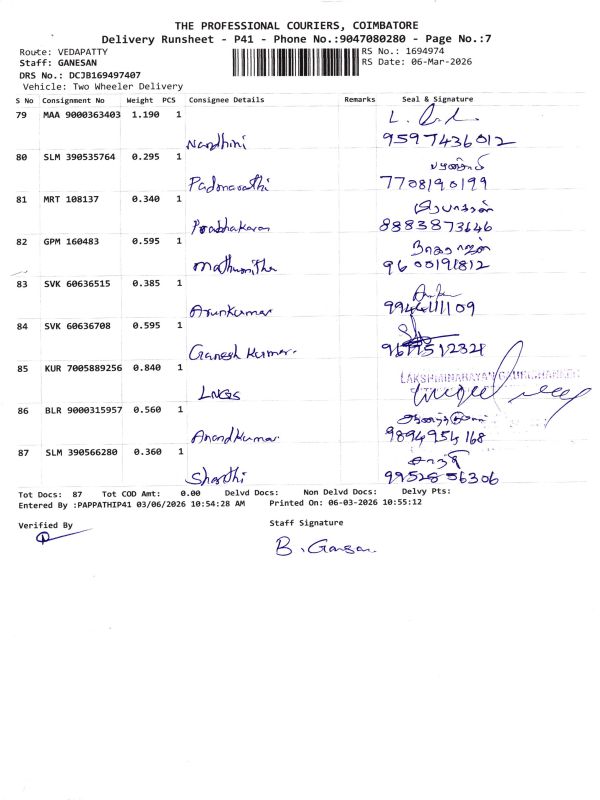 THE PROFESSIONAL COURIERS, COIMBATORE
Delivery Runsheet - P41 - Phone No.:9047080280 - Page No.:7
Route: VEDAPATTY
RS No.: 1694974
Staff: GANESAN
RS Date: 06-Mar-2026
DRS No.: DCJB169497407
Vehicle: Two Wheeler Delivery
S No Consignment No Weight PCS Consignee Details Remarks Seal & Signature
79 MAA 9000363403 1.190 1
Nandhini 9597436012
80 SLM 390535764 0.295 1
Padmavathi 7708190199
81 MRT 108137 0.340 1
Prabhakaran 8883873646
82 GPM 160483 0.595 1
Mathumitha 9600191812
83 SVK 60636515 0.385 1
Arunkumar
84 SVK 60636708 0.595 1
Ganesh Kumar.
85 KUR 7005889256 0.840 1
LNGS
86 BLR 9000315957 0.560 1
Anandkumar 9894954168
87 SLM 390566280 0.360 1
Sharthi 9952856306
Tot Docs: 87 Tot COD Amt: 0.00 Delvd Docs: Non Delvd Docs: Delvy Pts:
Entered By :PAPPATHIP41 03/06/2026 10:54:28 AM Printed On: 06-03-2026 10:55:12
Verified By
Staff Signature
B. Gansan.